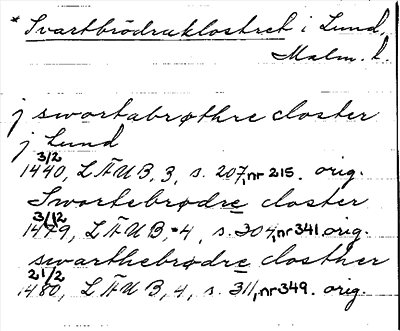 * Svartbrödraklostret i Lund,
Malm. l.
j swortabrøthre closter
j Lund
3/2
1440, LÄUB, 3, s. 207, nr 215. orig.
Swortebrødre closter
3/12
1479, LÄUB, 4, s. 304, nr 341 orig.
swarthebrødre closther
21/2
1480, LÄUB, 4, s. 311, nr 349. orig.